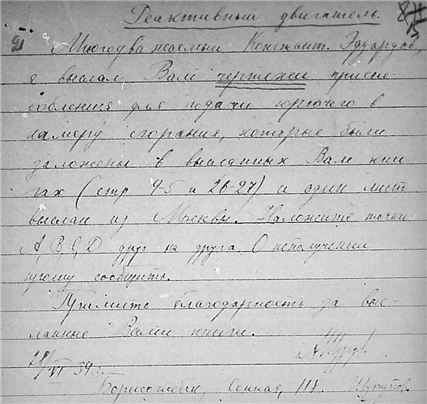 Реактивный двигатель.
Многоуважаемый Констант. Эдуардов.,
я выслал Вам чертежи приспо-
собления для подачи горючего в
камеру сгорания, которые были
заложены в высланных Вам кни-
гах (стр 45 и 26-27) и один лист
выслан из Москвы. Наложите точки
A, B, C, D друг на друга. О неполучении
прошу сообщить.
Примите благодарность за выс-
ланные Вами книги.
VI 34 г.
Борисоглебск, Сенная,